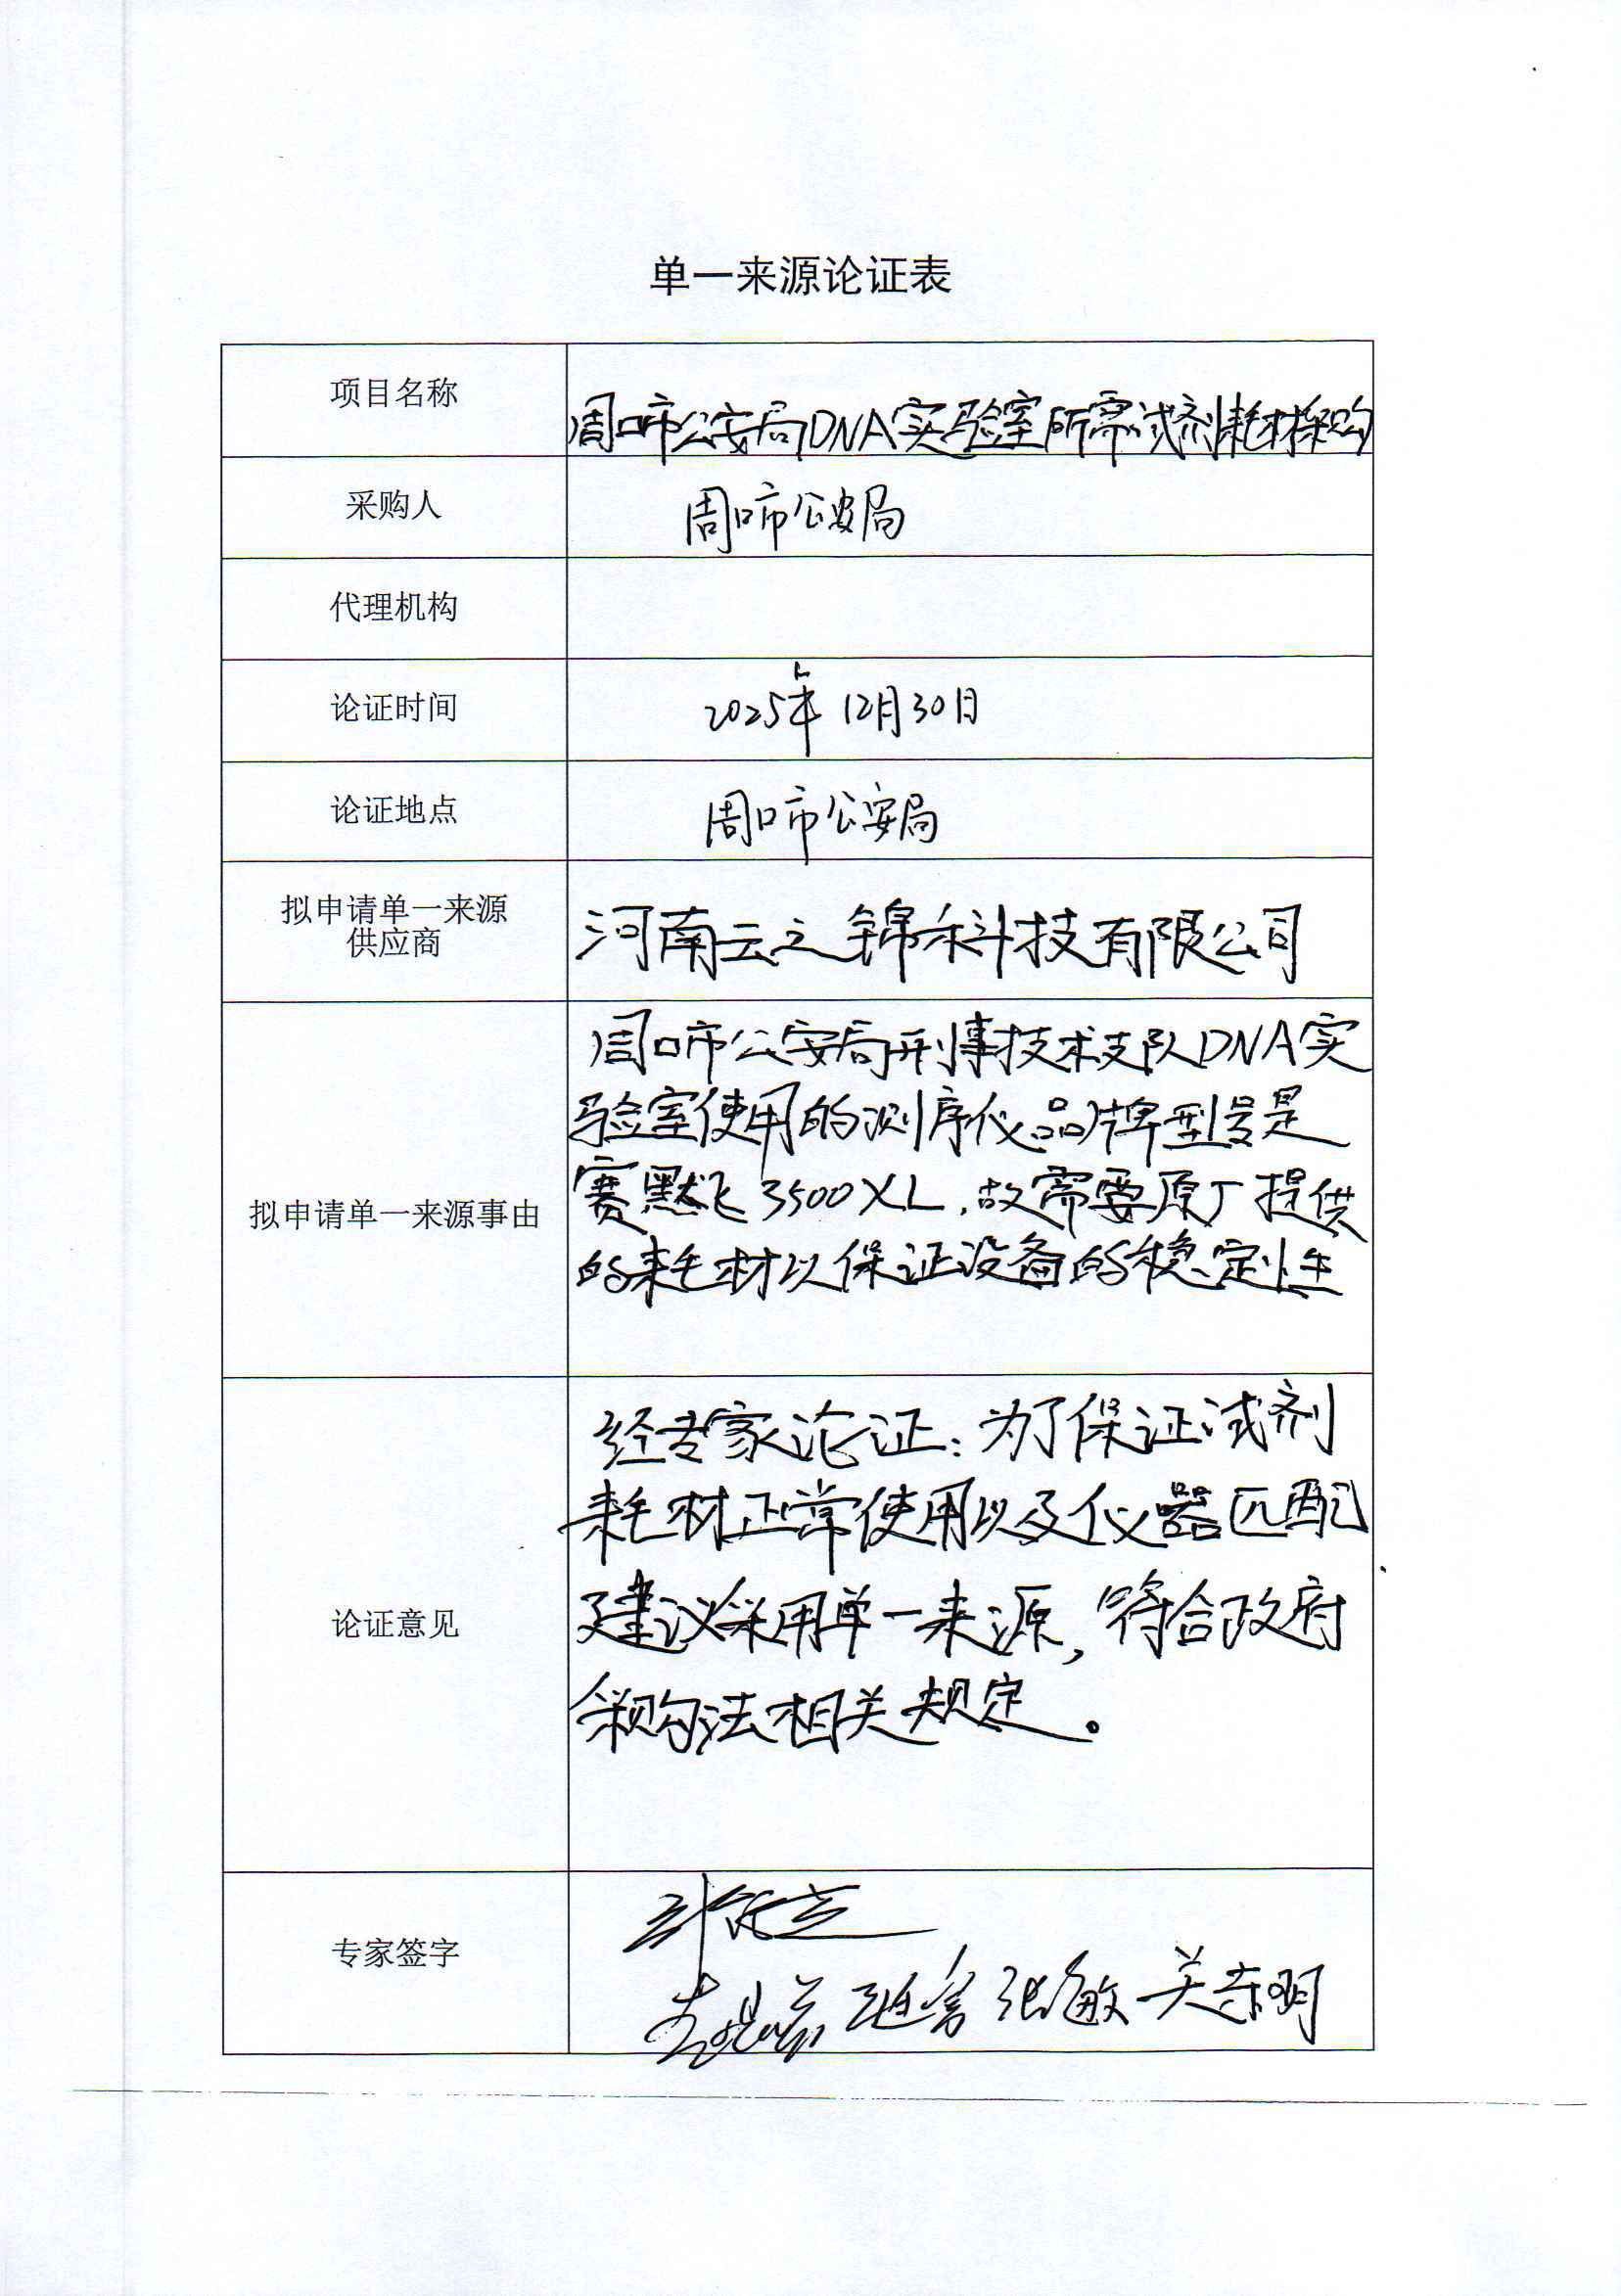 单一来源论证表
项目名称
周口市公安局DNA实验室所需试剂耗材采购
采购人
周口市公安局
代理机构
论证时间
2025年12月30日
论证地点
周口市公安局
拟申请单一来源
供应商
河南云之锦科技有限公司
拟申请单一来源事由
周口市公安局刑事技术支队DNA实
验室使用的测序仪品牌型号是
赛默飞3500XL,故需要原厂提供
的耗材以保证设备的稳定性
论证意见
经专家论证:为了保证试剂
耗材正常使用以及仪器匹配
建议采用单一来源,符合政府
采购法相关规定。
专家签字
张敏